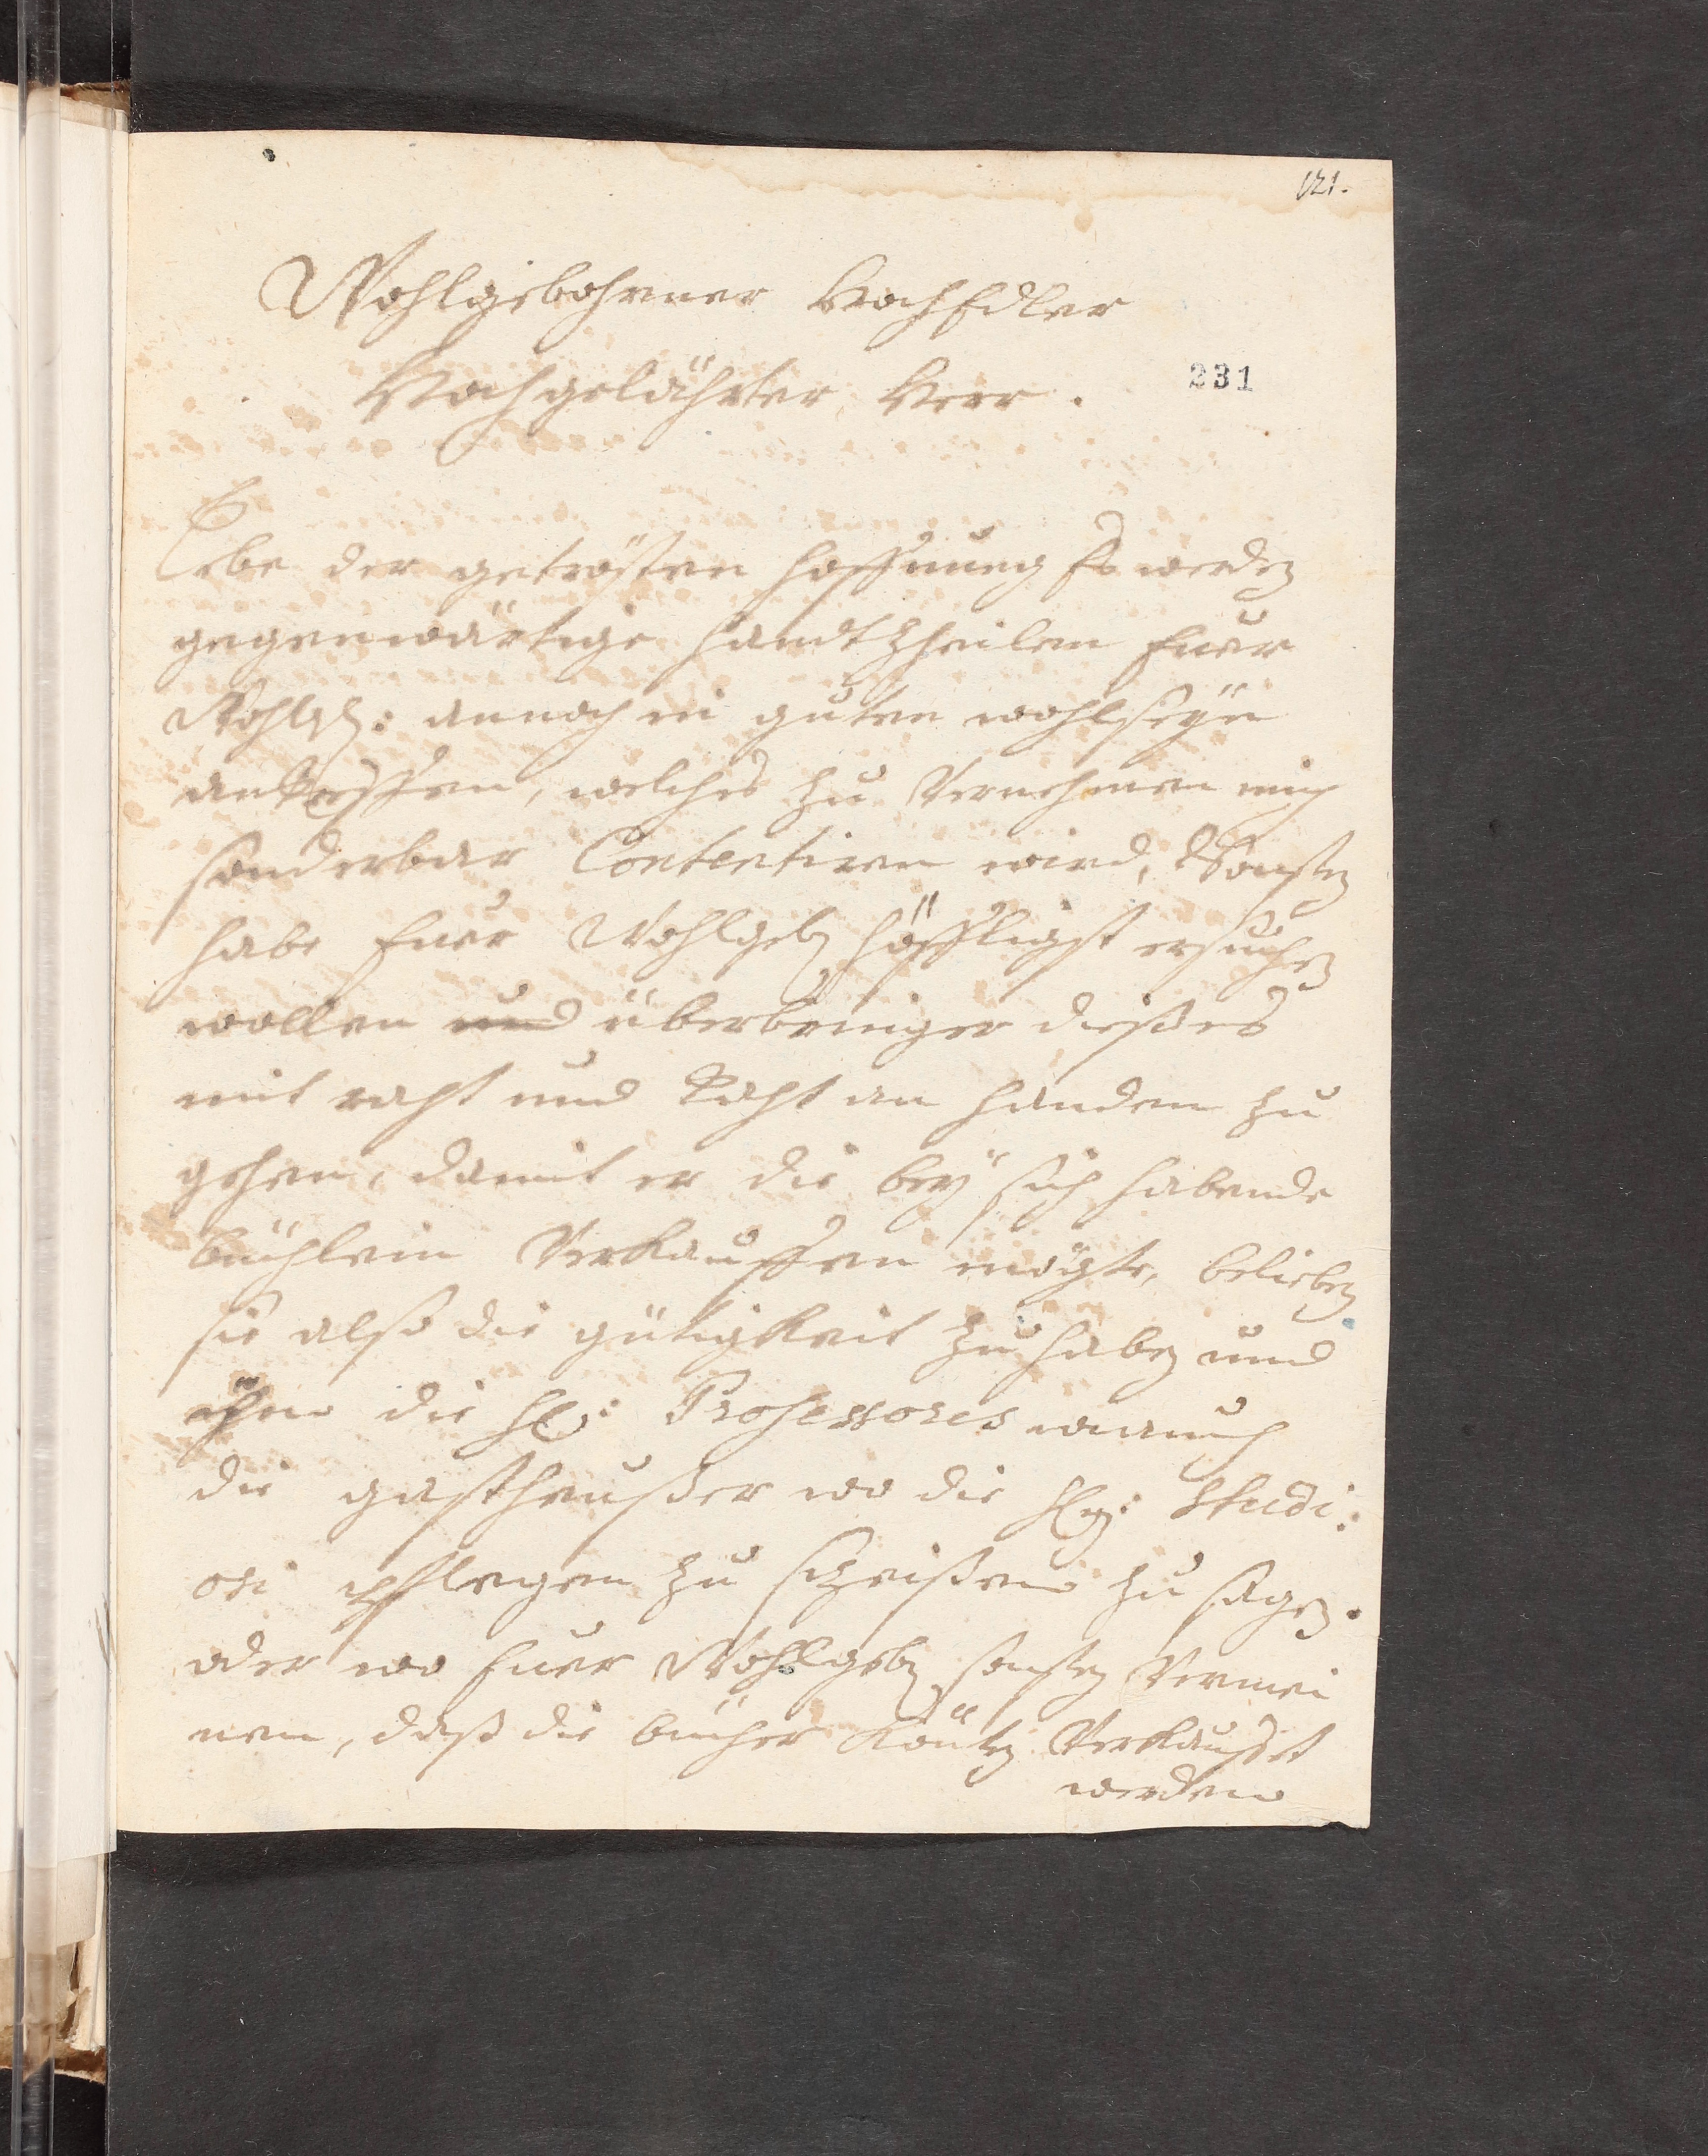 121.
Wohlgebohrner HochEdler
Hochgelährter Herr.
231
Lebe der getrösten hoffnung Es werden
gegenwärtige handt Zheilen Euer
Wohlg: annoch in guten wohlseÿn
antreffen, welches zu Vernehmen mich
sonderbar Contentiren wird, Sonsten
habe Euer Wohlgeb höffligst ersuchen
wollen und überbringer dießes
mit raht und That an handen zu
gehen, damit er die beÿ sich habende
büchlein Verkauffen mögte, belieben
sie also die gütigkeit zu haben und
ihm die H: Professores wie auch
die gastheusser wo die H: Studi:
osi pflegen zu speißen zu sagen.
oder wo Euer Wohlgeb sonsten Vermei
nen, daß die bücher könten Verkaufft
werden